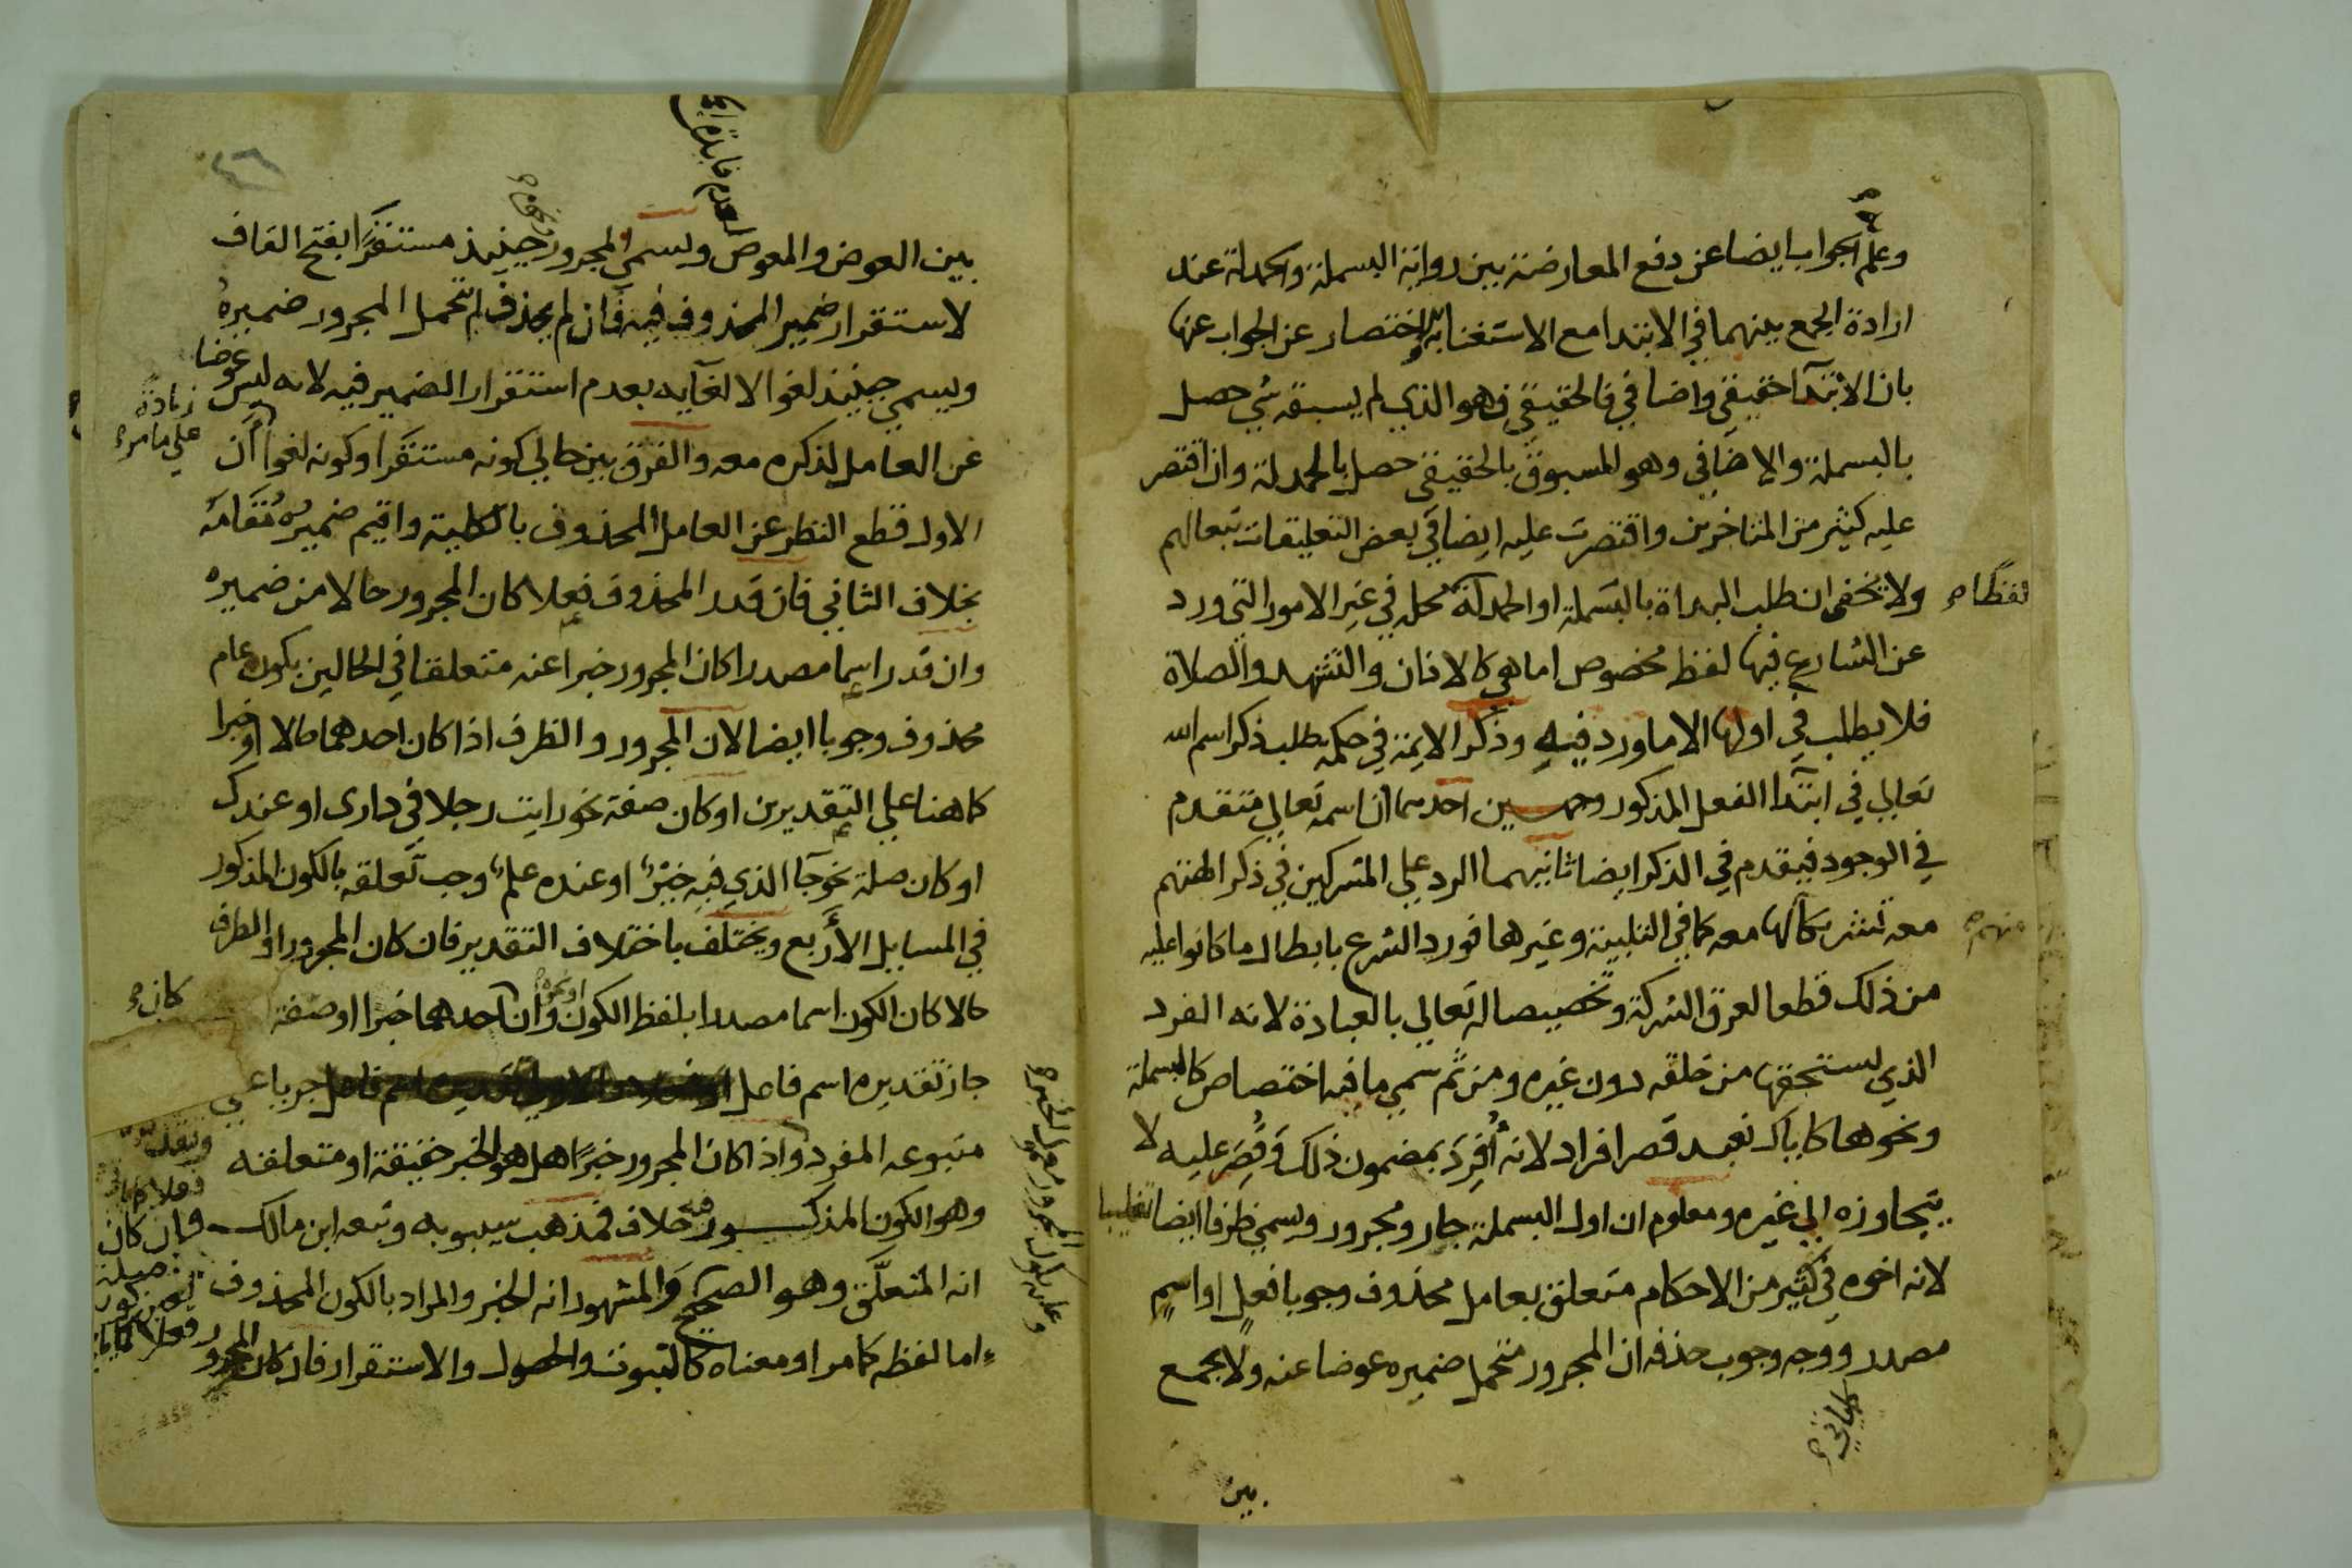 وعلم الجواب ايضا عن دفع المعارضة بين رواية البسملة والحمدلة عند
ارادة الجمع بينهما في الابتدا مع الاستغنا به للاختصار عن الجواب عنها
بان الابتدآ حقيقي واضافي فالحقيقي وهو الذي لم يسبقه شي حصل
بالبسملة والاضافي وهو المسبوق بالحقيقي حصل بالحمدلة وان اقتصر
عليه كثير من المتاخرين واقتصرت عليه ايضا في بعض التعليقات تبعا لهم
ولا يخفى ان طلب البداة بالبسملة او الحمدلة محله في غير الامور التي ورد
لفظا
عن الشارع فيها لفظ مخصوص اما هي كالاذان والتشهد والصلاة
فلا يطلب في اولها الا ما ورد فيه وذكر الايمة في حكمة طلب ذكر اسم الله
تعالي في ابتدآ الفعل المذكور وجهين احدهما ان اسمه تعالي متقدم
في الوجود فيقدم في الذكر ايضا ثانيهما الرد علي المشركين في ذكر الهتهم
معه تشريكا لها معه كما في التلبية وغيرها فورد الشرع بابطال ما كانوا عليه
منهم
من ذلك قطعا لعرق الشركة وتخصيصا له تعالي بالعبادة لانه الفرد
الذي يستحقها من خلقه دون غيره ومن ثم سمي ما فيه اختصاص كالبسملة
ونحوها كاياك نعبد قصر افراد لانه اُفرِدَ بمضمون ذلك وقُصِرَ عليه لا
يتجاوزه الي غيره ومعلوم ان اول البسملة جار ومجرور ويسمي ظرفا ايضا تغليبا
لانه اخوه في كثير من الاحكام متعلق بعامل محذوف وجوبا فعلٍ او اسمٍ
مصدر ووجه وجوب حذفه ان المجرور متحمل ضميره عوضا عنه ولا يجمع
بين
بين العوض والمعوض ويسمي المجرور حينيذ مستقَرًا بفتح القاف
لاستقرار ضمير المحذوف فيه فان لم يحذف لم يتحمل المجرور ضميره
ويسمي حينيذ لغوا لالغآيه بعدم استقرار الضمير فيه لانه ليس عوضا
زيادة
علي ما مر
عن العامل لذكره معه والفرق بين حالي كونه مستقرا وكونه لغوا ان
الاول قطع النظر عن العامل المحذوف بالكلية واقيم ضميره مُقَامَه
بخلاف الثاني فان قدر المحذوف فعلا كان المجرور حالا من ضميره
وان قدر اسما مصدرا كان المجرور خبرا عنه متعلقا في الحالين بكون عام
محذوف وجوبا ايضا لان المجرور والظرف اذا كان احدهما حالا او خبرا
كما هنا علي التقديرين او كان صفة نحو رايت رجلا في داري او عندك
او كان صلة نحو جآ الذي فيه خيرٌ او عنده علمٌ وجب تعلقه بالكون المذكور
في المسايل الأربع ويختلف باختلاف التقدير فان كان المجرور او الظرف
حالا كان الكون اسما مصدرا بلفظ الكون او نحوه وان كان احدهما خبرا او صفة
جاز تقديره اسم فاعل جريا علي
متبوعه المفرد واذا كان المجرور خبرًا هل هو الخبر حقيقة او متعلقه
وهو الكون المذكور فيه خلاف فمذهب سيبويه وتبعه ابن مالك
انه المتعلَّق وهو الصحيح والمشهور انه الخبر والمراد بالكون المحذوف
اما لفظه كما مر او معناه كالثبوت والحصول والاستقرار فان كان المجرور